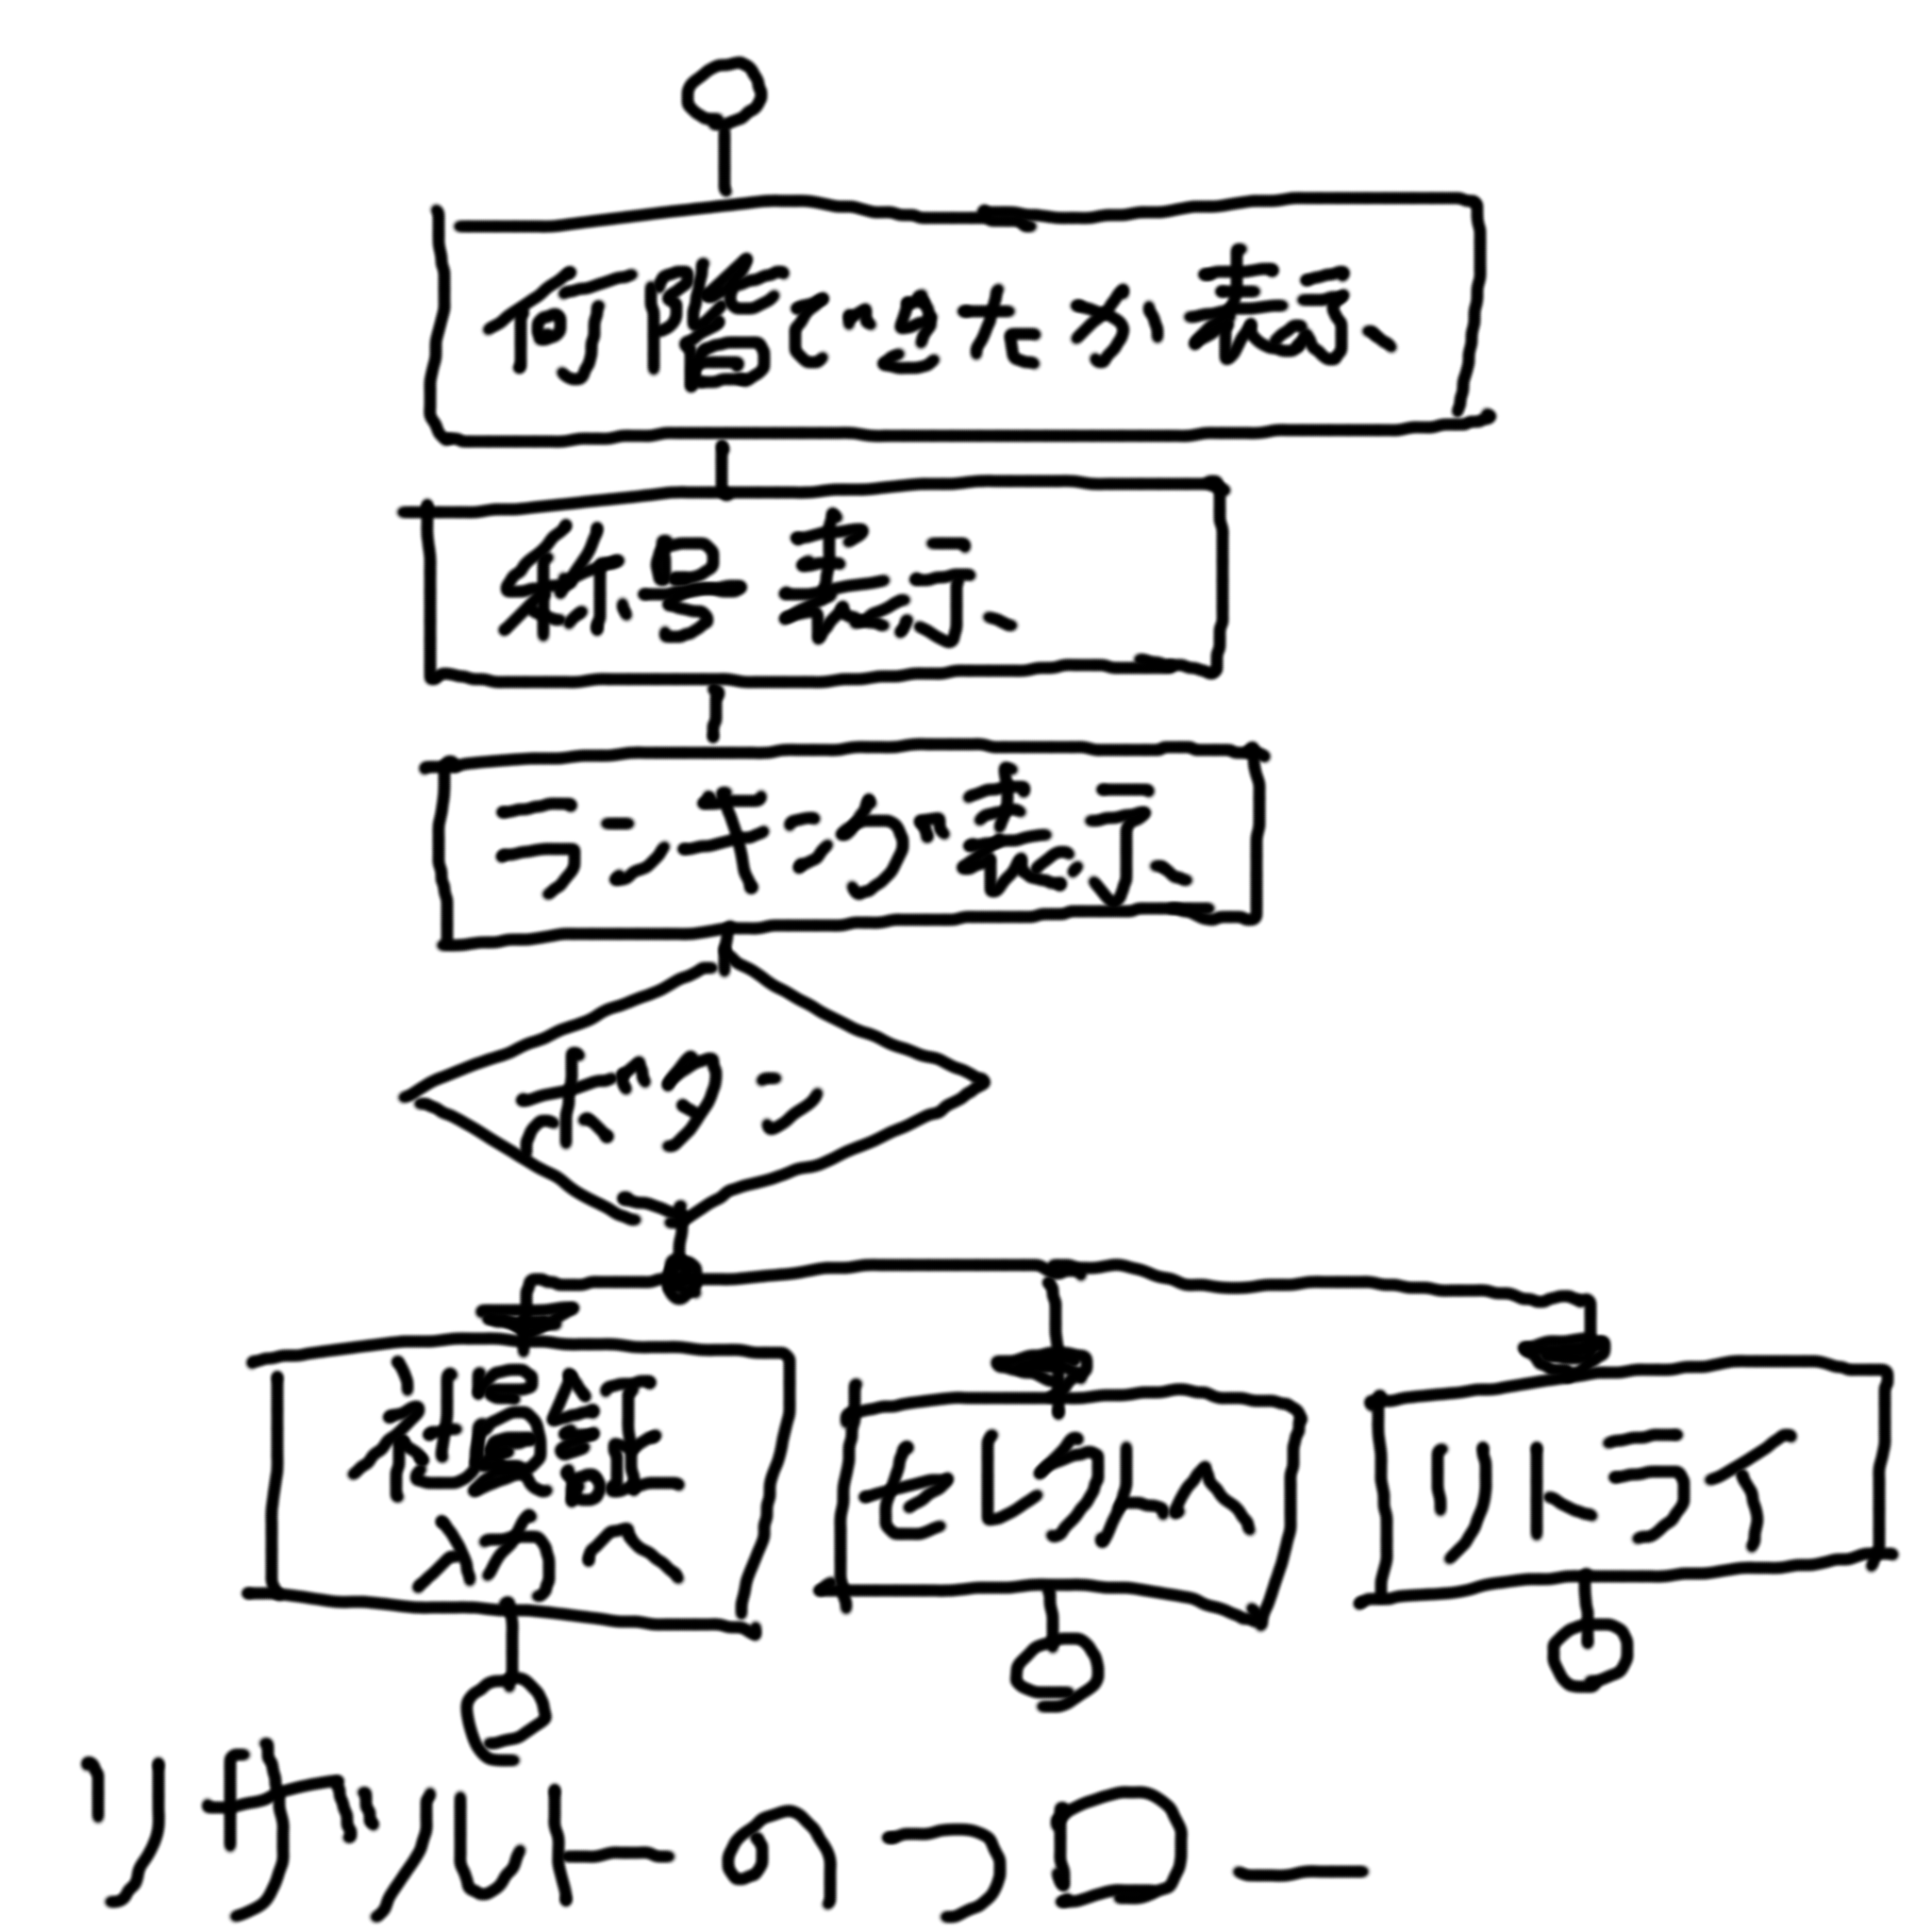 何階でしたか表示
称号 表示
ランキング表示
ボタン
セレクトへ
リトライ
リザルトのフロー